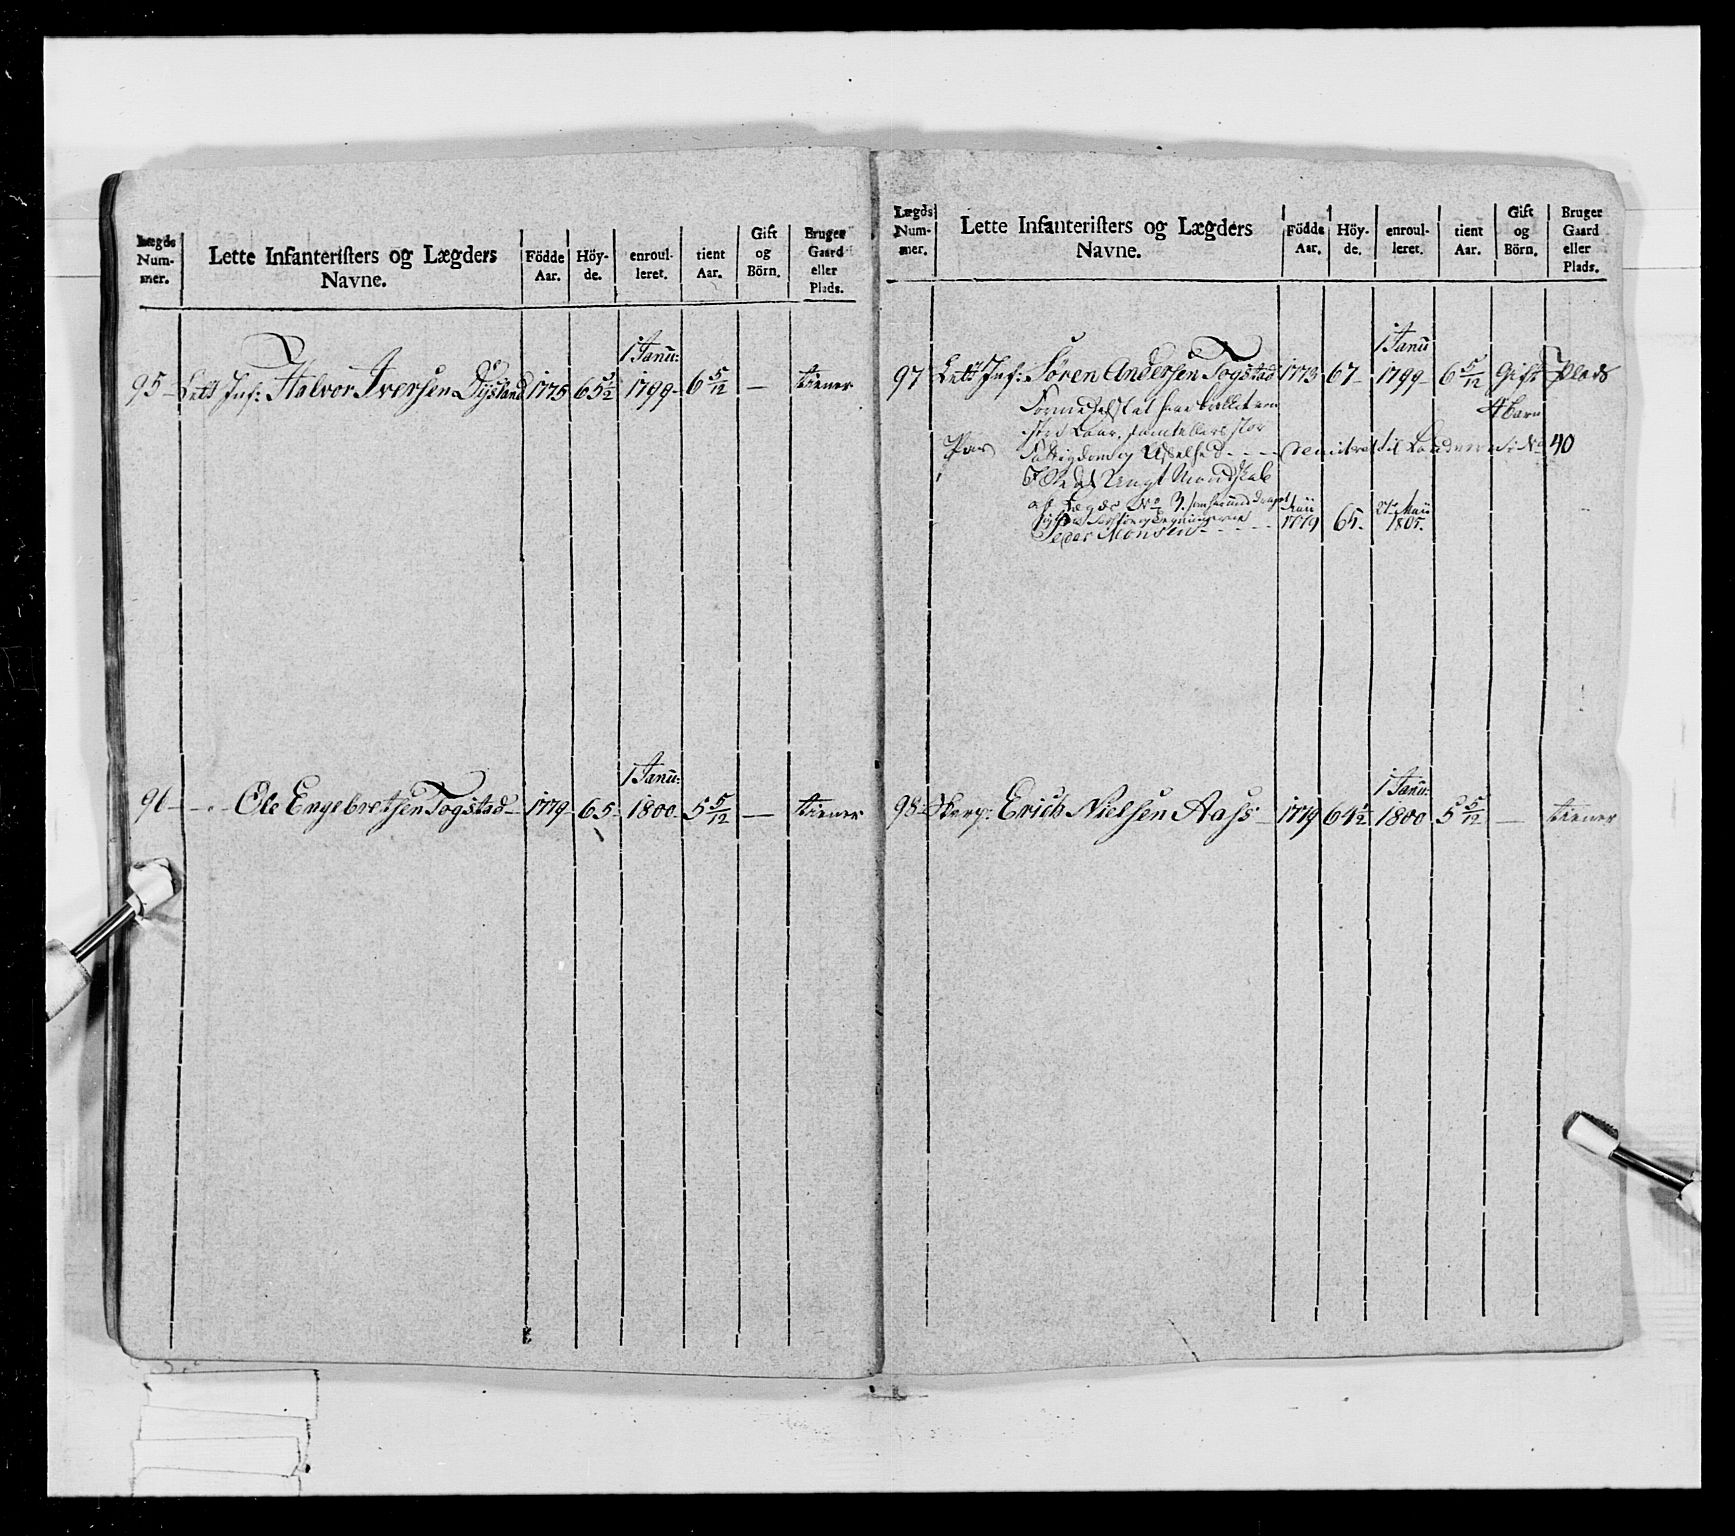 Lægds Num- mer. | Lette Infanteriſters og Lægders Navne. | Födde Aar. | Höy- de. | enroul- leret. | tient Aar. | Gift og Börn. | Bruger Gaard eller Plads.
1 Janu:
95 Lett Inf: Halvor Iversen Dÿstand 1775 65½ 1799 6 5/12 — tiener
1 Janu:
96 — Ole Engebretsen Togstad 1779 65 1800 5 5/12 — tiener
Lægds Num- mer. | Lette Infanteriſters og Lægders Navne. | Födde Aar. | Höy- de. | enroul- leret. | tient Aar. | Gift og Börn. | Bruger Gaard eller Plads.
1 Janu
97 Lett Inf: Sören Andersen Togstad 1773 67 1799 6 5/12 Gift Plads
Barn
stor
til No 40
Ungt Mandskab
af Lægds No 3.
27 Maii
Peder Monsen 1779 65 1805.
1 Janu:
98 Skarp: Erich Nielsen Aass 1779 64½ 1800 5 5/12 — tiener